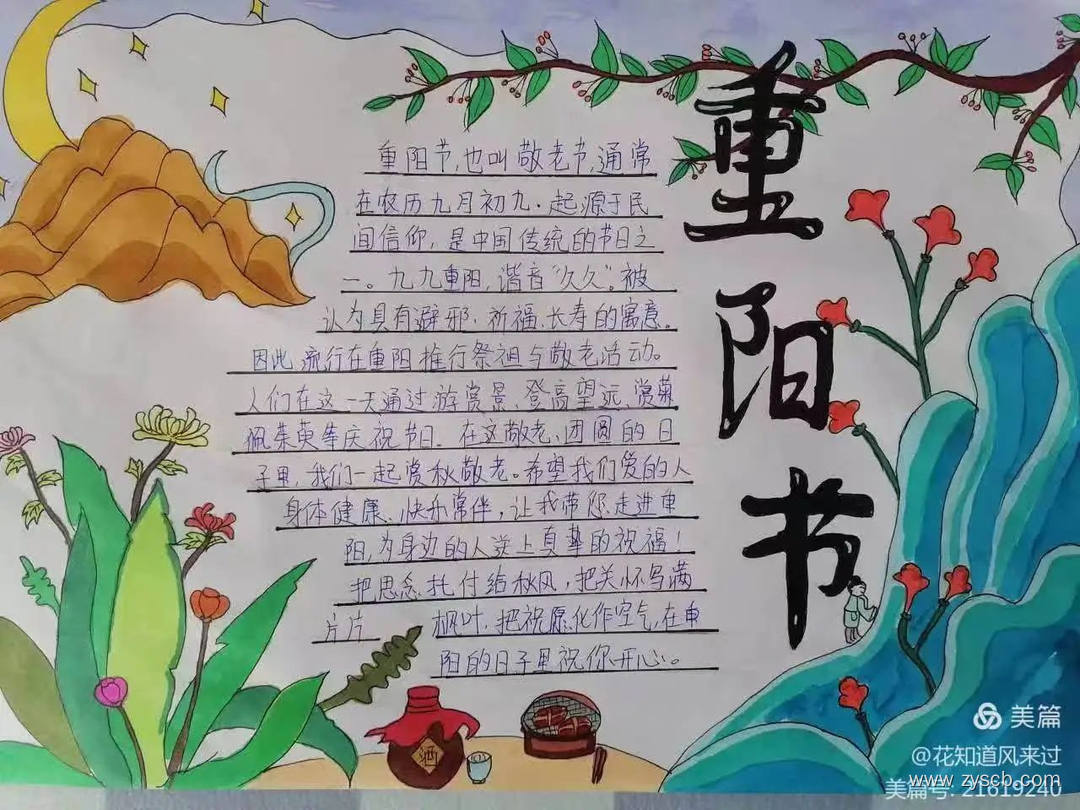 重阳节
重阳节,也叫敬老节,通常
在农历九月初九.起源于民
间信仰,是中国传统的节日之
一。九九重阳,谐音“久久”。被
认为具有避邪、祈福、长寿的寓意。
因此,流行在重阳推行祭祖与敬老活动。
人们在这一天通过游赏景、登高望远、赏菊
佩茱萸等庆祝节日.在这敬老、团圆的日
子里,我们一起赏秋敬老。希望我们爱的人
身体健康、快乐常伴,让我带您走进重
阳,为身边的人送上真挚的祝福!
把思念托付给秋风,把关怀写满
片片 枫叶,把祝愿化作空气,在重
阳的日子里祝你开心。
酒
美篇
@花知道风来过
www.zyscb.com
美篇号: 21619240